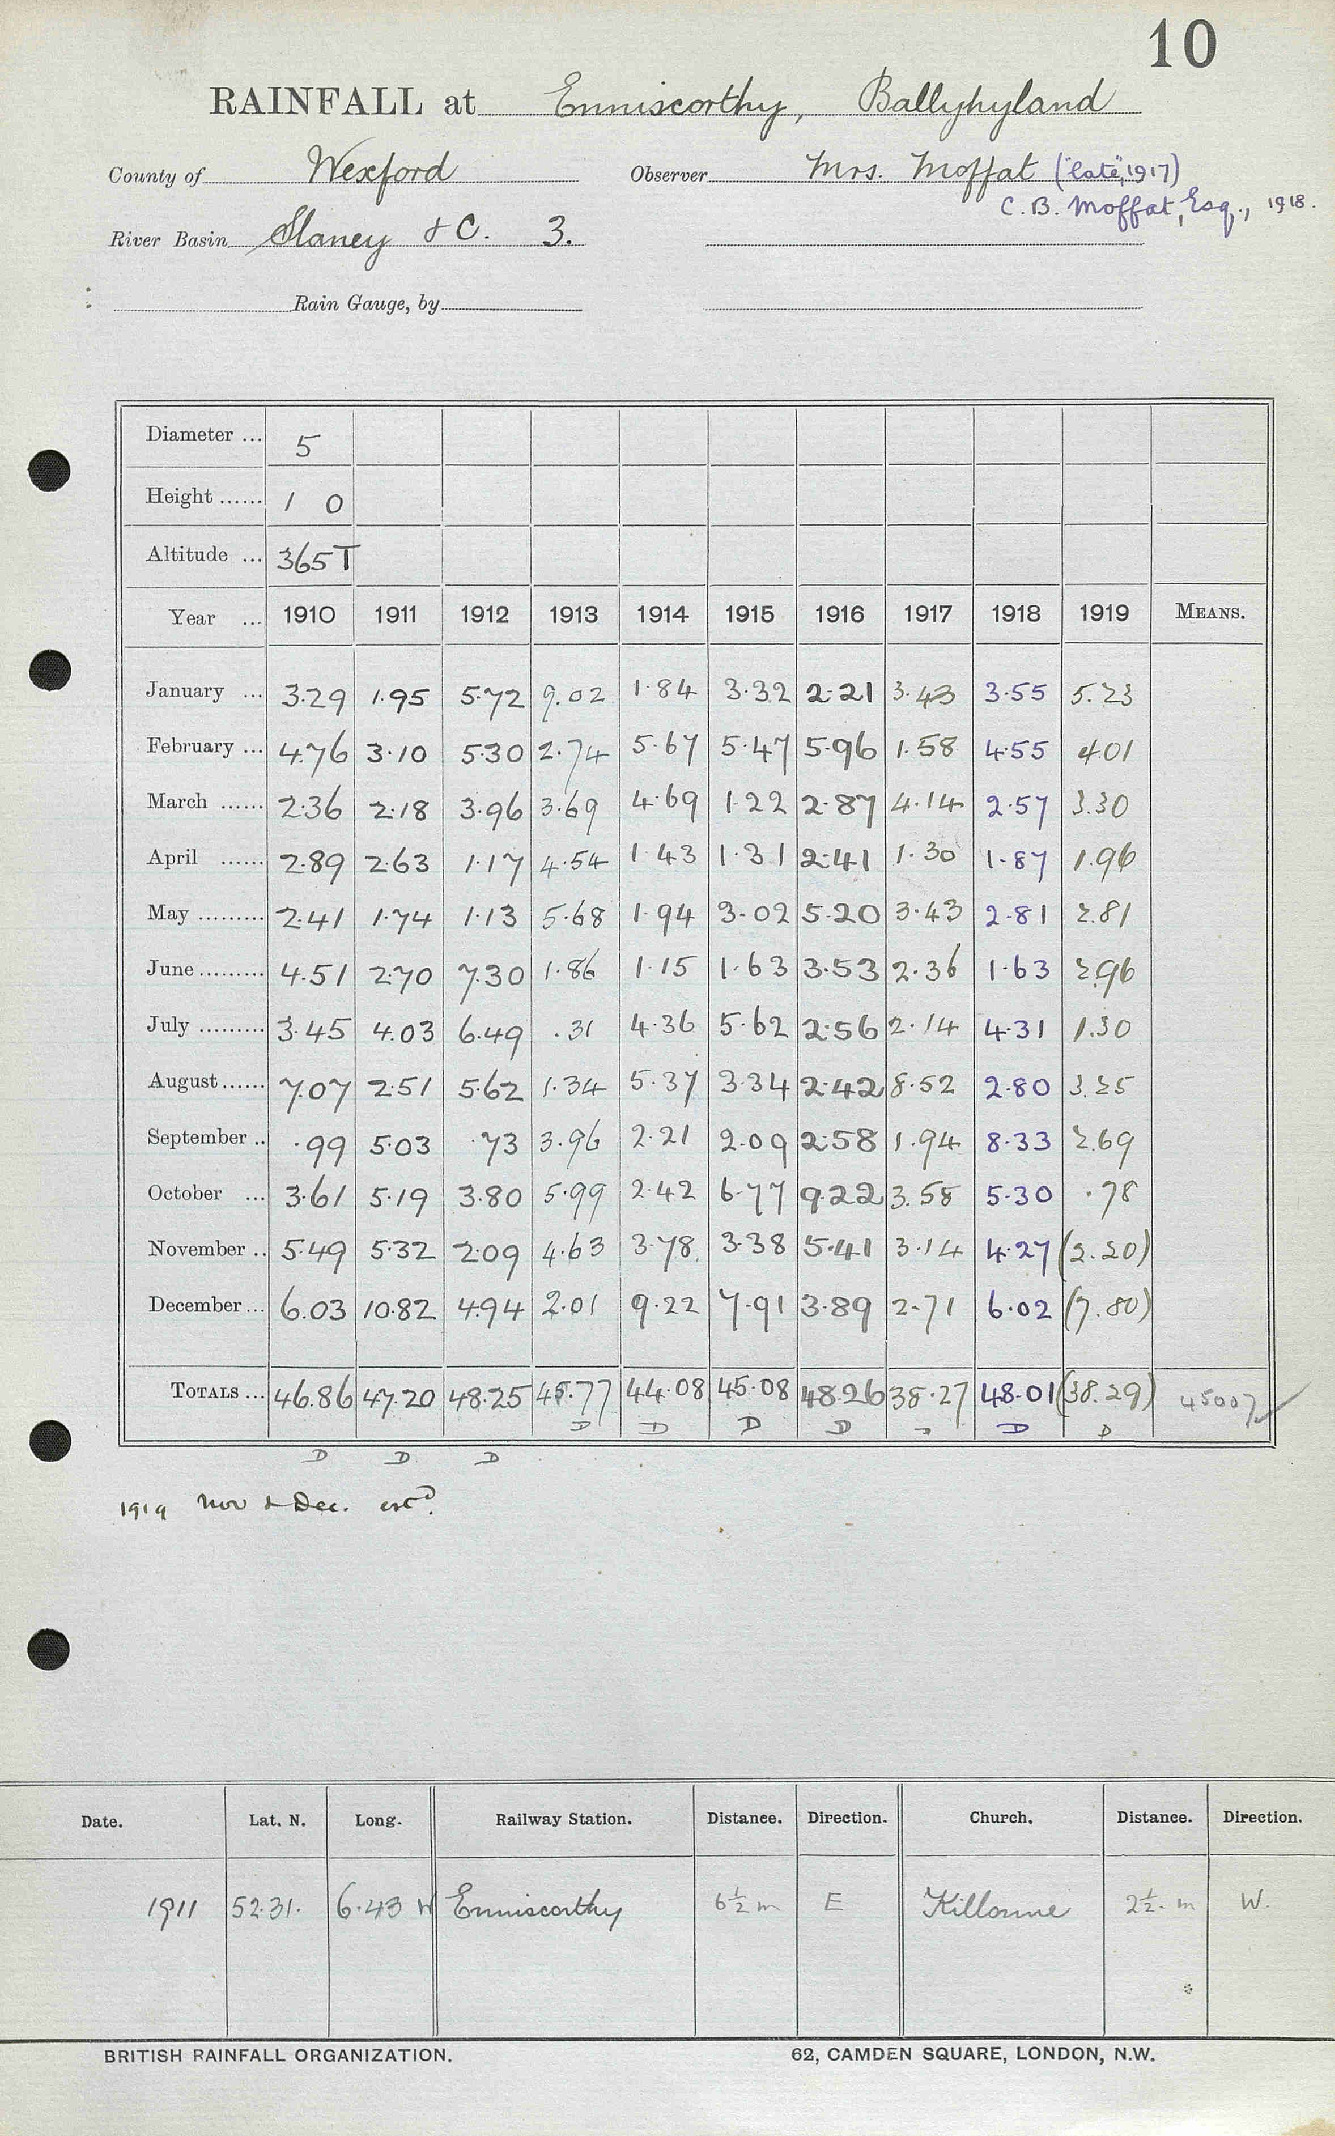 10
RAINFALL at Enniscorthy, Ballyhyland
County of Wexford Observer Mrs. Moffat ("late", 1917)
C. B. Moffat, Esq., 1918.
River Basin Slaney & C. 3.
Rain Gauge, by
Diameter ... 5
Height ...... 1 0
Altitude ... 365T
Year ... 1910 1911 1912 1913 1914 1915 1916 1917 1918 1919 MEANS.
January ... 3.29 1.95 5.72 9.02 1.84 3.32 2.21 3.43 3.55 5.23
February ... 4.76 3.10 5.30 2.74 5.67 5.47 5.96 1.58 4.55 4.01
March ...... 2.36 2.18 3.96 3.69 4.69 1.22 2.87 4.14 2.57 3.30
April ...... 2.89 2.63 1.17 4.54 1.43 1.31 2.41 1.30 1.87 1.96
May ......... 2.41 1.74 1.13 5.68 1.94 3.02 5.20 3.43 2.81 2.81
June ......... 4.51 2.70 7.30 1.86 1.15 1.63 3.53 2.36 1.63 2.96
July ......... 3.45 4.03 6.49 .31 4.36 5.62 2.56 2.14 4.31 1.30
August ...... 7.07 2.51 5.62 1.34 5.37 3.34 2.42 8.52 2.80 3.25
September .. .99 5.03 .73 3.96 2.21 2.09 2.58 1.94 8.33 2.69
October ... 3.61 5.19 3.80 5.99 2.42 6.77 9.22 3.58 5.30 .78
November .. 5.49 5.32 2.09 4.63 3.78 3.38 5.41 3.14 4.27 (2.20)
December ... 6.03 10.82 4.94 2.01 9.22 7.91 3.89 2.71 6.02 (7.80)
TOTALS ... 46.86 47.20 48.25 45.77 44.08 45.08 48.26 38.27 48.01 (38.29) 45007 ✓
D D D D D D
D D D
1919 Nov & Dec. estd.
Date. Lat. N. Long. Railway Station. Distance. Direction. Church. Distance. Direction.
1911 52.31. 6.43 W Enniscorthy 6½ m E Killanne 2½ m W.
BRITISH RAINFALL ORGANIZATION. 62, CAMDEN SQUARE, LONDON, N.W.